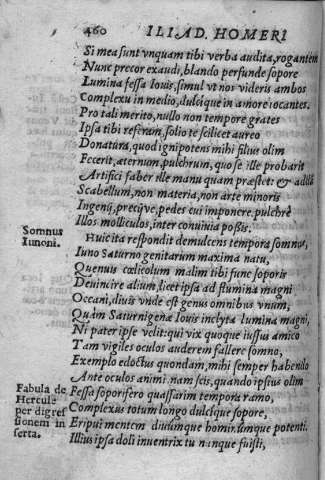 460 ILIAD. HOMERI
Si mea sunt vnquam tibi verba audita, rogantem
Nunc precor exaudi, blando perfunde sopore
Lumina fessa Iouis, simul vt nos videris ambos
Complexu in medio, dulcique in amore iocantes.
Pro tali merito, nullo non tempore grates
Ipsa tibi referam, solio te scilicet aureo
Donatura, quod ignipotens mihi filius olim
Fecerit, æternum, pulchrum, quo se ille probarit
Artifici faber ille manu quam præstet: & addā
Scabellum, non materia, non arte minoris
Ingenij, precijve, pedes cui imponere pulchrè
Illos molliculos, inter conuiuia possis.
Somnus
Iunoni.
Huic ita respondit demulcens tempora somnus,
Iuno Saturno genitarum maxima natu,
Quemuis cœlicolum malim tibi func soporis
Deuincire alium, licet ipsa ad flumina magni
Oceani, diuis vnde est genus omnibus vnum,
Quàm Saturnigenæ Iouis inclyta lumina magni,
Ni pater ipse velit: qui vix quoque iussus amico
Tam vigiles oculos auderem fallere somno,
Exemplo edoctus quondam, mihi semper habendo
Ante oculos animi nam scis, quando ipsius olim
Fabula de
Hercule
per digres
sionem in
serta.
Fessa soporifero quassarim tempora ramo,
Complexus totum longo dulcique sopore,
Eripui mentem diuûmque hominúmque potenti.
Illius ipsa doli inuentrix tu nanque fuisti,